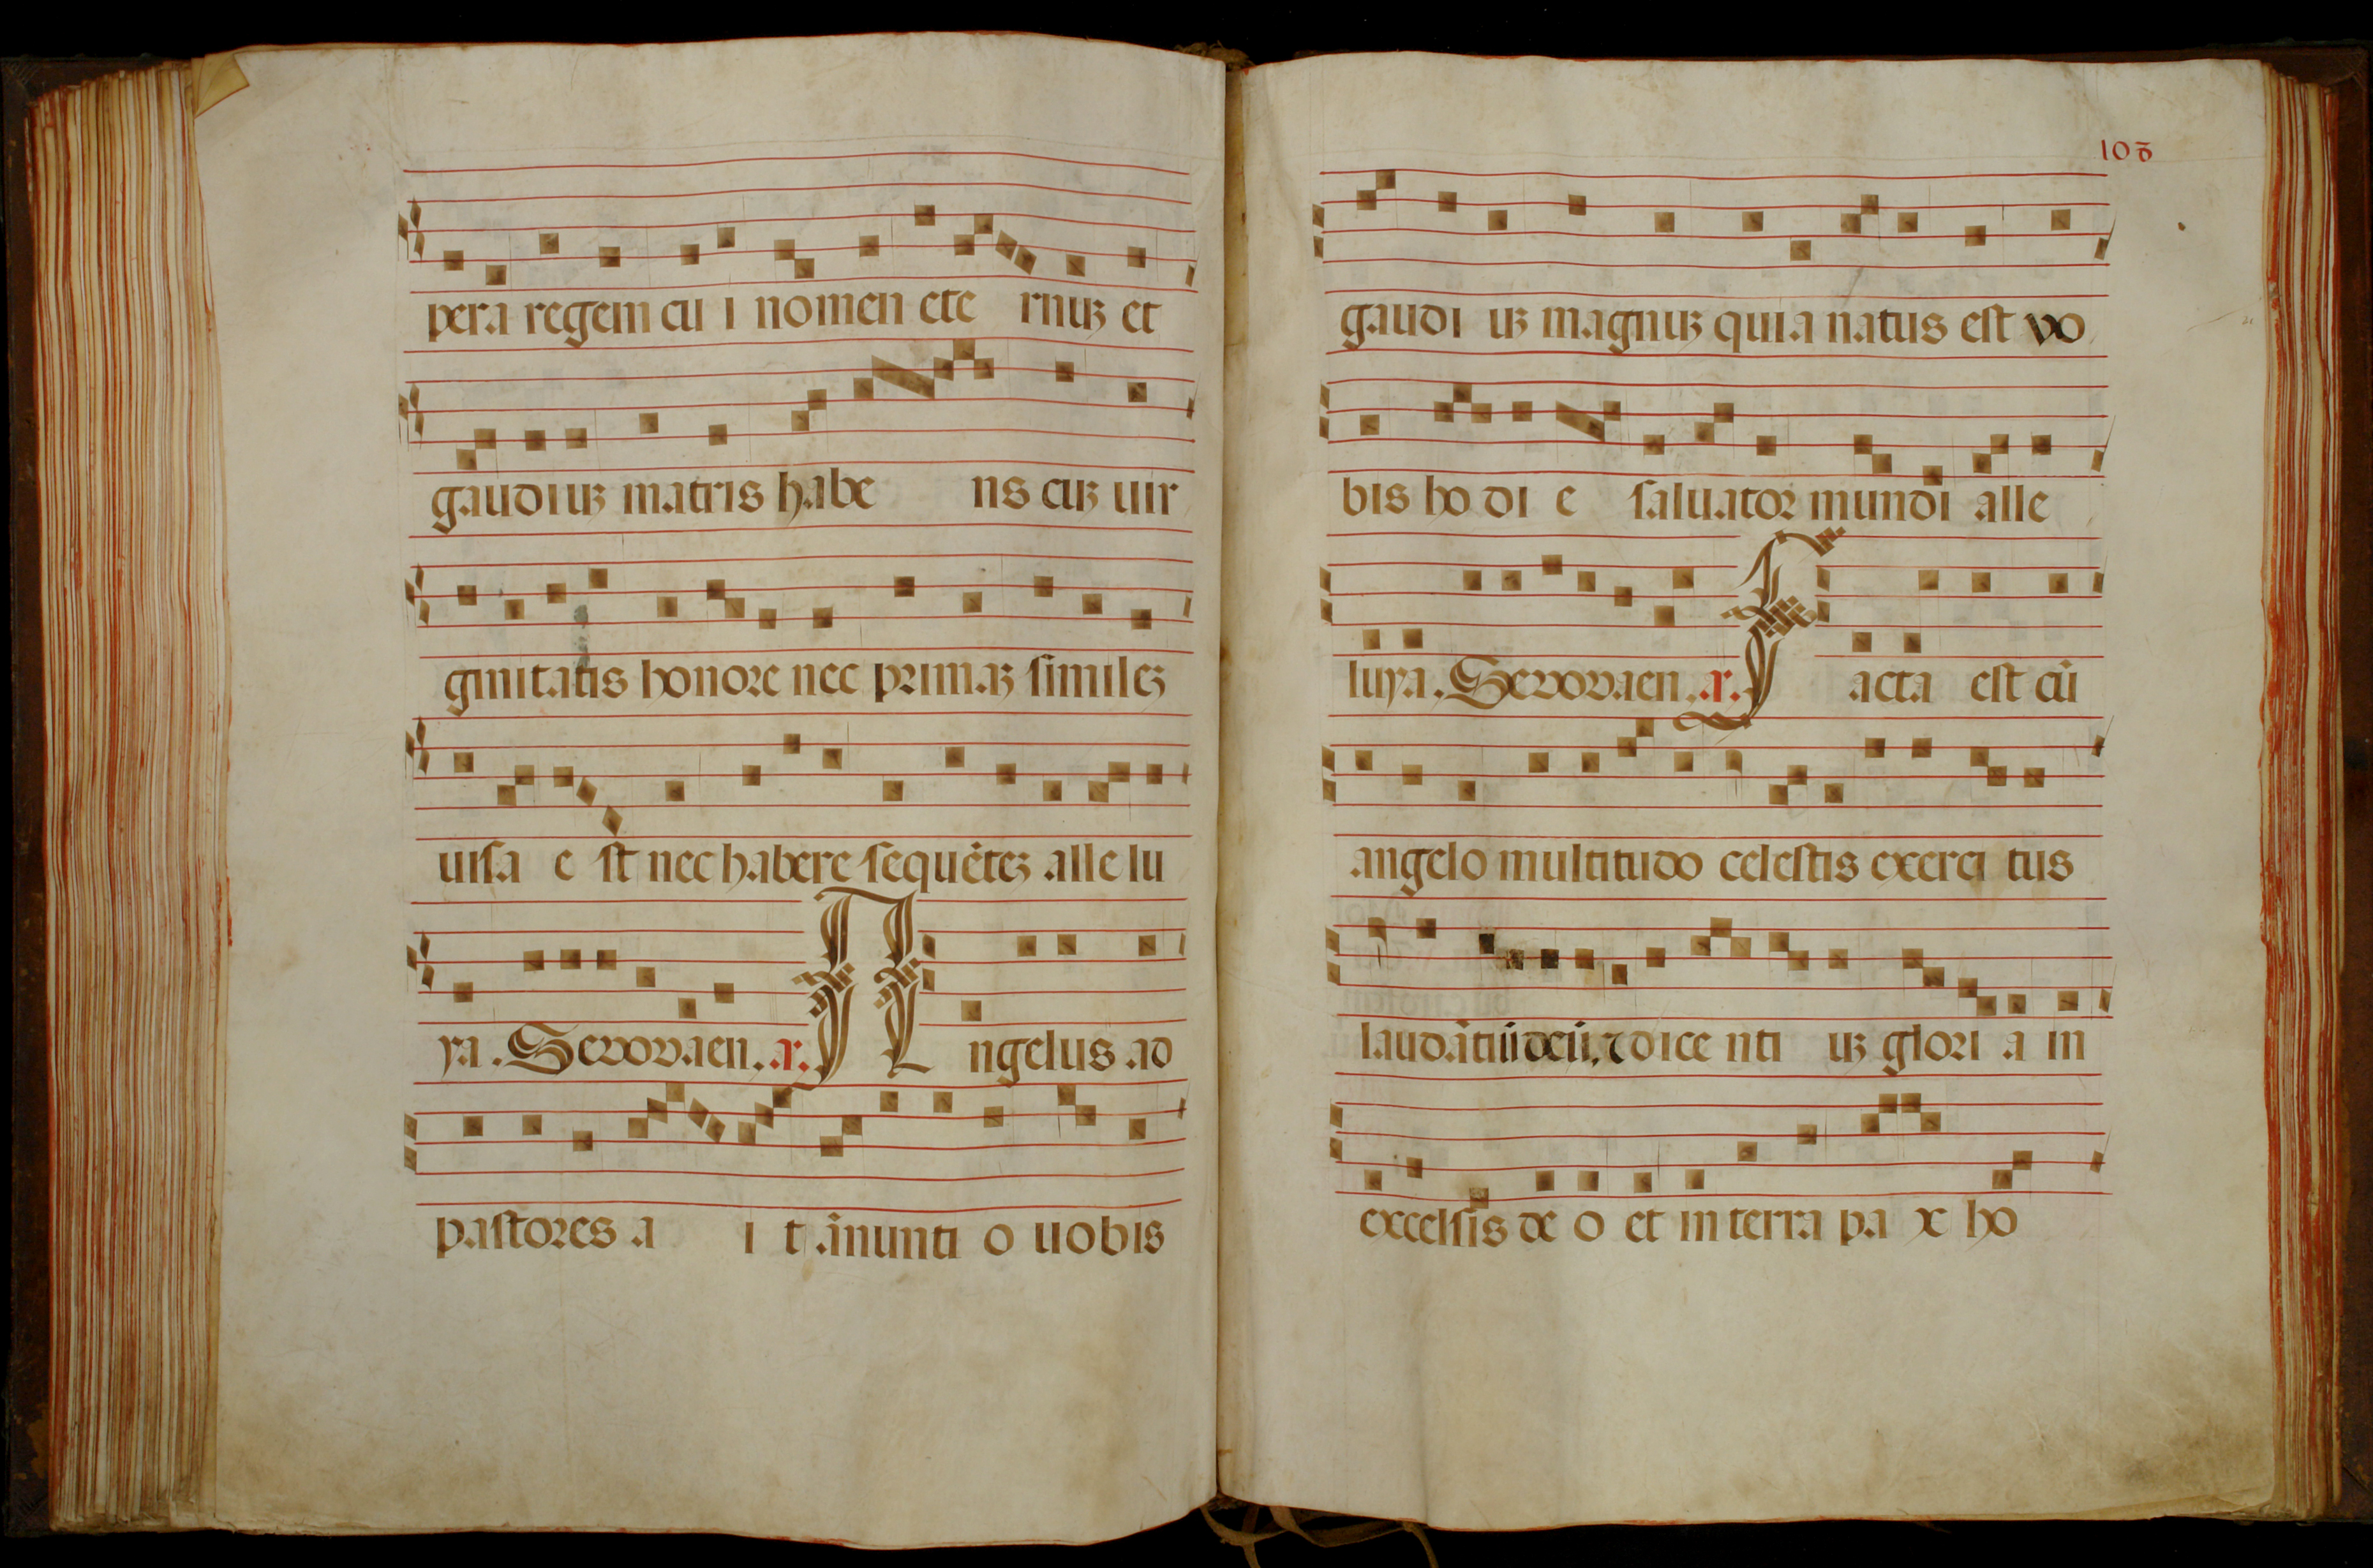 pera regem cu i nomen ete rnuꝫ et
gaudiuꝫ matris habe ns cuꝫ uir
ginitatis honore nec primaꝫ ſimileꝫ
uiſa e ſt nec habere ſequẽteꝫ alle lu
ya. Seuouaen. a. A ngelus ad
paſtores a i t ãnunti o uobis
103
gaudi uꝫ magnuꝫ quia natus eſt vo
bis ho di e ſaluator mundi alle
luya. Seuouaen. a. F acta eſt cũ
angelo multitudo celeſtis exerci tus
laudãtiũ deũ, ⁊ dice nti uꝫ glori a in
excelſis de o et in terra pa x ho